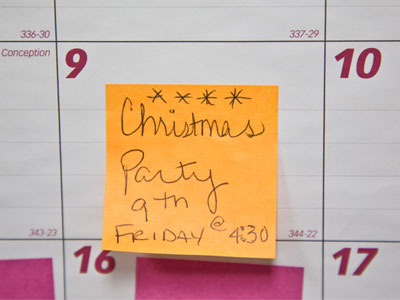 336-30
337-29
Conception
9
10
****
Christmas
Party
9th
FRIDAY @ 4:30
343-23
344-22
16
17